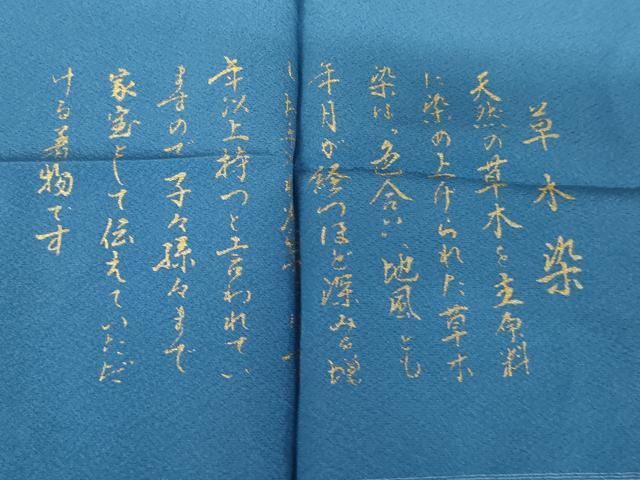 草木染
天然の草木を主原料
に染め上げられた草木
染は、色合い、地風とも
年月が経つほど深みを増
し
年以上持つと言われてい
ますので子々孫々まで
家宝として伝えていただ
ける着物です